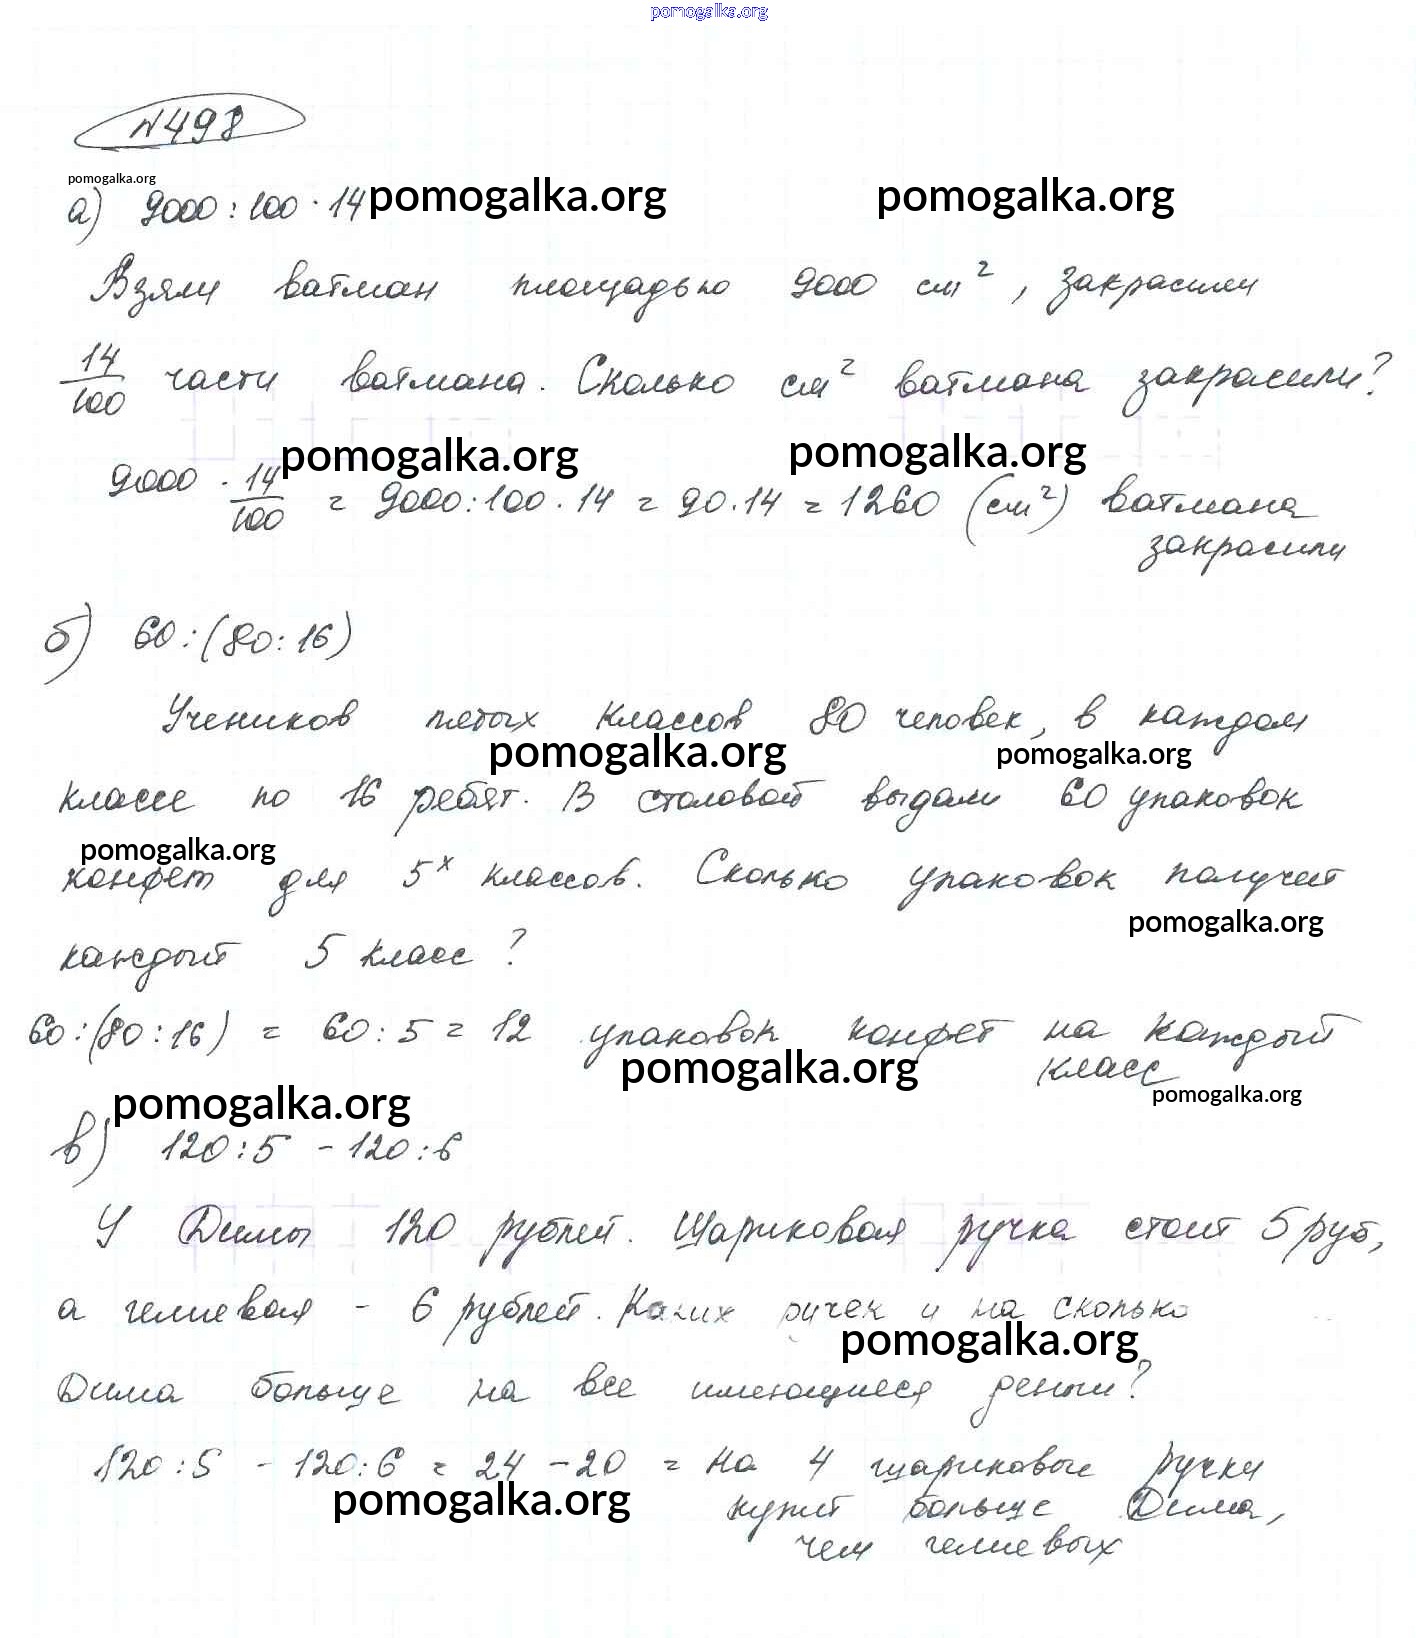 pomogalka.org
№498
pomogalka.org
а) 9000 : 100 · 14 pomogalka.org pomogalka.org
Взяли ватман площадью 9000 см², закрасили
14/100 части ватмана. Сколько см² ватмана закрасили?
pomogalka.org pomogalka.org
9000 · 14/100 = 9000 : 100 · 14 = 90 · 14 = 1260 (см²) ватмана
закрасили
б) 60 : (80 : 16)
Учеников пятых классов 80 человек, в каждом
pomogalka.org pomogalka.org
классе по 16 ребят. В столовой выдали 60 упаковок
pomogalka.org
конфет для 5х классов. Сколько упаковок получит
pomogalka.org
каждый 5 класс?
60 : (80 : 16) = 60 : 5 = 12 упаковок конфет на каждый
pomogalka.org класс
pomogalka.org pomogalka.org
в) 120 : 5 - 120 : 6
У Димы 120 рублей. Шариковая ручка стоит 5 руб,
а гелиевая - 6 рублей. Каких ручек и на сколько
pomogalka.org
Дима больше на все имеющиеся деньги?
120 : 5 - 120 : 6 = 24 - 20 = на 4 шариковые ручки
pomogalka.org купит больше Дима,
чем гелиевых